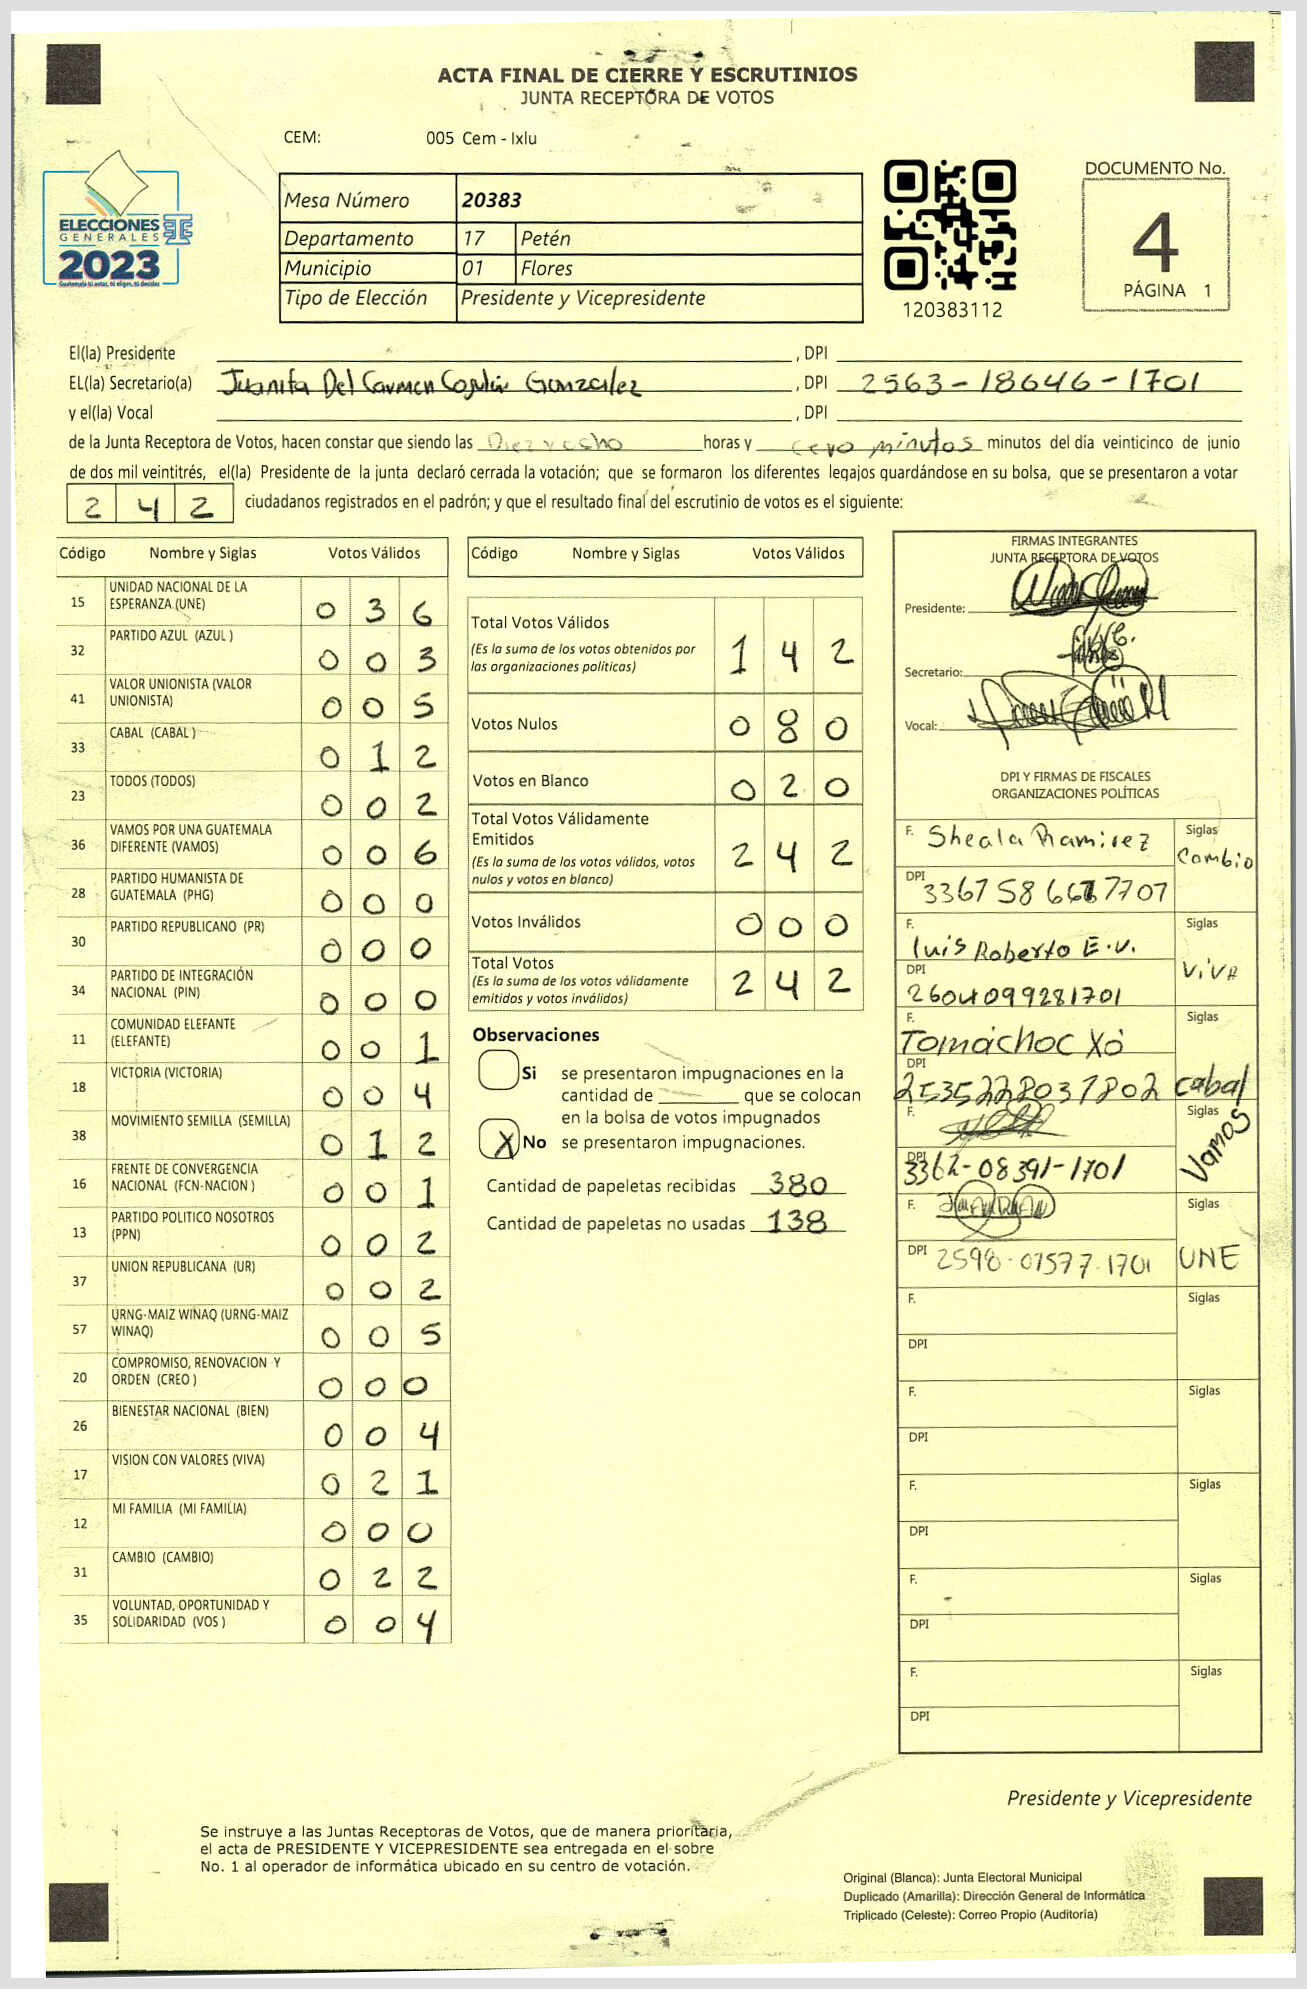 ACTA FINAL DE CIERRE Y ESCRUTINIOS
JUNTA RECEPTORA DE VOTOS
CEM: 005 Cem - Ixlu
ELECCIONES
GENERALES
2023
Guatemala tú antes, tú eliges, tú decides
Mesa Número 20383
Departamento 17 Petén
Municipio 01 Flores
Tipo de Elección Presidente y Vicepresidente
120383112
DOCUMENTO No.
4
PÁGINA 1
El(la) Presidente , DPI
EL(la) Secretario(a) Juanita Del Carmen González , DPI 2563-18646-1701
y el(la) Vocal , DPI
de la Junta Receptora de Votos, hacen constar que siendo las Diez y ocho horas y cero minutos minutos del día veinticinco de junio
de dos mil veintitrés, el(la) Presidente de la junta declaró cerrada la votación; que se formaron los diferentes legajos quardándose en su bolsa, que se presentaron a votar
242 ciudadanos registrados en el padrón; y que el resultado final del escrutinio de votos es el siguiente:
Código Nombre y Siglas Votos Válidos
15 UNIDAD NACIONAL DE LA ESPERANZA (UNE) 0 3 6
32 PARTIDO AZUL (AZUL ) 0 0 3
41 VALOR UNIONISTA (VALOR UNIONISTA) 0 0 5
33 CABAL (CABAL ) 0 1 2
23 TODOS (TODOS) 0 0 2
36 VAMOS POR UNA GUATEMALA DIFERENTE (VAMOS) 0 0 6
28 PARTIDO HUMANISTA DE GUATEMALA (PHG) 0 0 0
30 PARTIDO REPUBLICANO (PR) 0 0 0
34 PARTIDO DE INTEGRACIÓN NACIONAL (PIN) 0 0 0
11 COMUNIDAD ELEFANTE (ELEFANTE) 0 0 1
18 VICTORIA (VICTORIA) 0 0 4
38 MOVIMIENTO SEMILLA (SEMILLA) 0 1 2
16 FRENTE DE CONVERGENCIA NACIONAL (FCN-NACION ) 0 0 1
13 PARTIDO POLITICO NOSOTROS (PPN) 0 0 2
37 UNION REPUBLICANA (UR) 0 0 2
57 URNG-MAIZ WINAQ (URNG-MAIZ WINAQ) 0 0 5
20 COMPROMISO, RENOVACION Y ORDEN (CREO ) 0 0 0
26 BIENESTAR NACIONAL (BIEN) 0 0 4
17 VISION CON VALORES (VIVA) 0 2 1
12 MI FAMILIA (MI FAMILIA) 0 0 0
31 CAMBIO (CAMBIO) 0 2 2
35 VOLUNTAD, OPORTUNIDAD Y SOLIDARIDAD (VOS ) 0 0 4
Código Nombre y Siglas Votos Válidos
Total Votos Válidos 1 4 2
(Es la suma de los votos obtenidos por
las organizaciones políticas)
Votos Nulos 0 8 0
Votos en Blanco 0 2 0
Total Votos Válidamente
Emitidos 2 4 2
(Es la suma de los votos válidos, votos
nulos y votos en blanco)
Votos Inválidos 0 0 0
Total Votos 2 4 2
(Es la suma de los votos válidamente
emitidos y votos inválidos)
Observaciones
Si se presentaron impugnaciones en la
cantidad de que se colocan
en la bolsa de votos impugnados
X No se presentaron impugnaciones.
Cantidad de papeletas recibidas 380
Cantidad de papeletas no usadas 138
FIRMAS INTEGRANTES
JUNTA RECEPTORA DE VOTOS
Presidente:
Secretario:
Vocal:
DPI Y FIRMAS DE FISCALES
ORGANIZACIONES POLÍTICAS
F. Sheala Ramirez Siglas Cambio
DPI
F. Luis Roberto E.V. Siglas VIVA
DPI 2604099281701
F. Tomáchoc Xó Siglas cabal
DPI 2535228037802
F. Siglas Vamos
DPI 3362-08391-1701
F. Siglas UNE
DPI 2598-07577-1701
F. Siglas
DPI
F. Siglas
DPI
F. Siglas
DPI
F. Siglas
DPI
F. Siglas
DPI
Presidente y Vicepresidente
Se instruye a las Juntas Receptoras de Votos, que de manera prioritaria,
el acta de PRESIDENTE Y VICEPRESIDENTE sea entregada en el sobre
No. 1 al operador de informática ubicado en su centro de votación.
Original (Blanca): Junta Electoral Municipal
Duplicado (Amarilla): Dirección General de Informática
Triplicado (Celeste): Correo Propio (Auditoría)